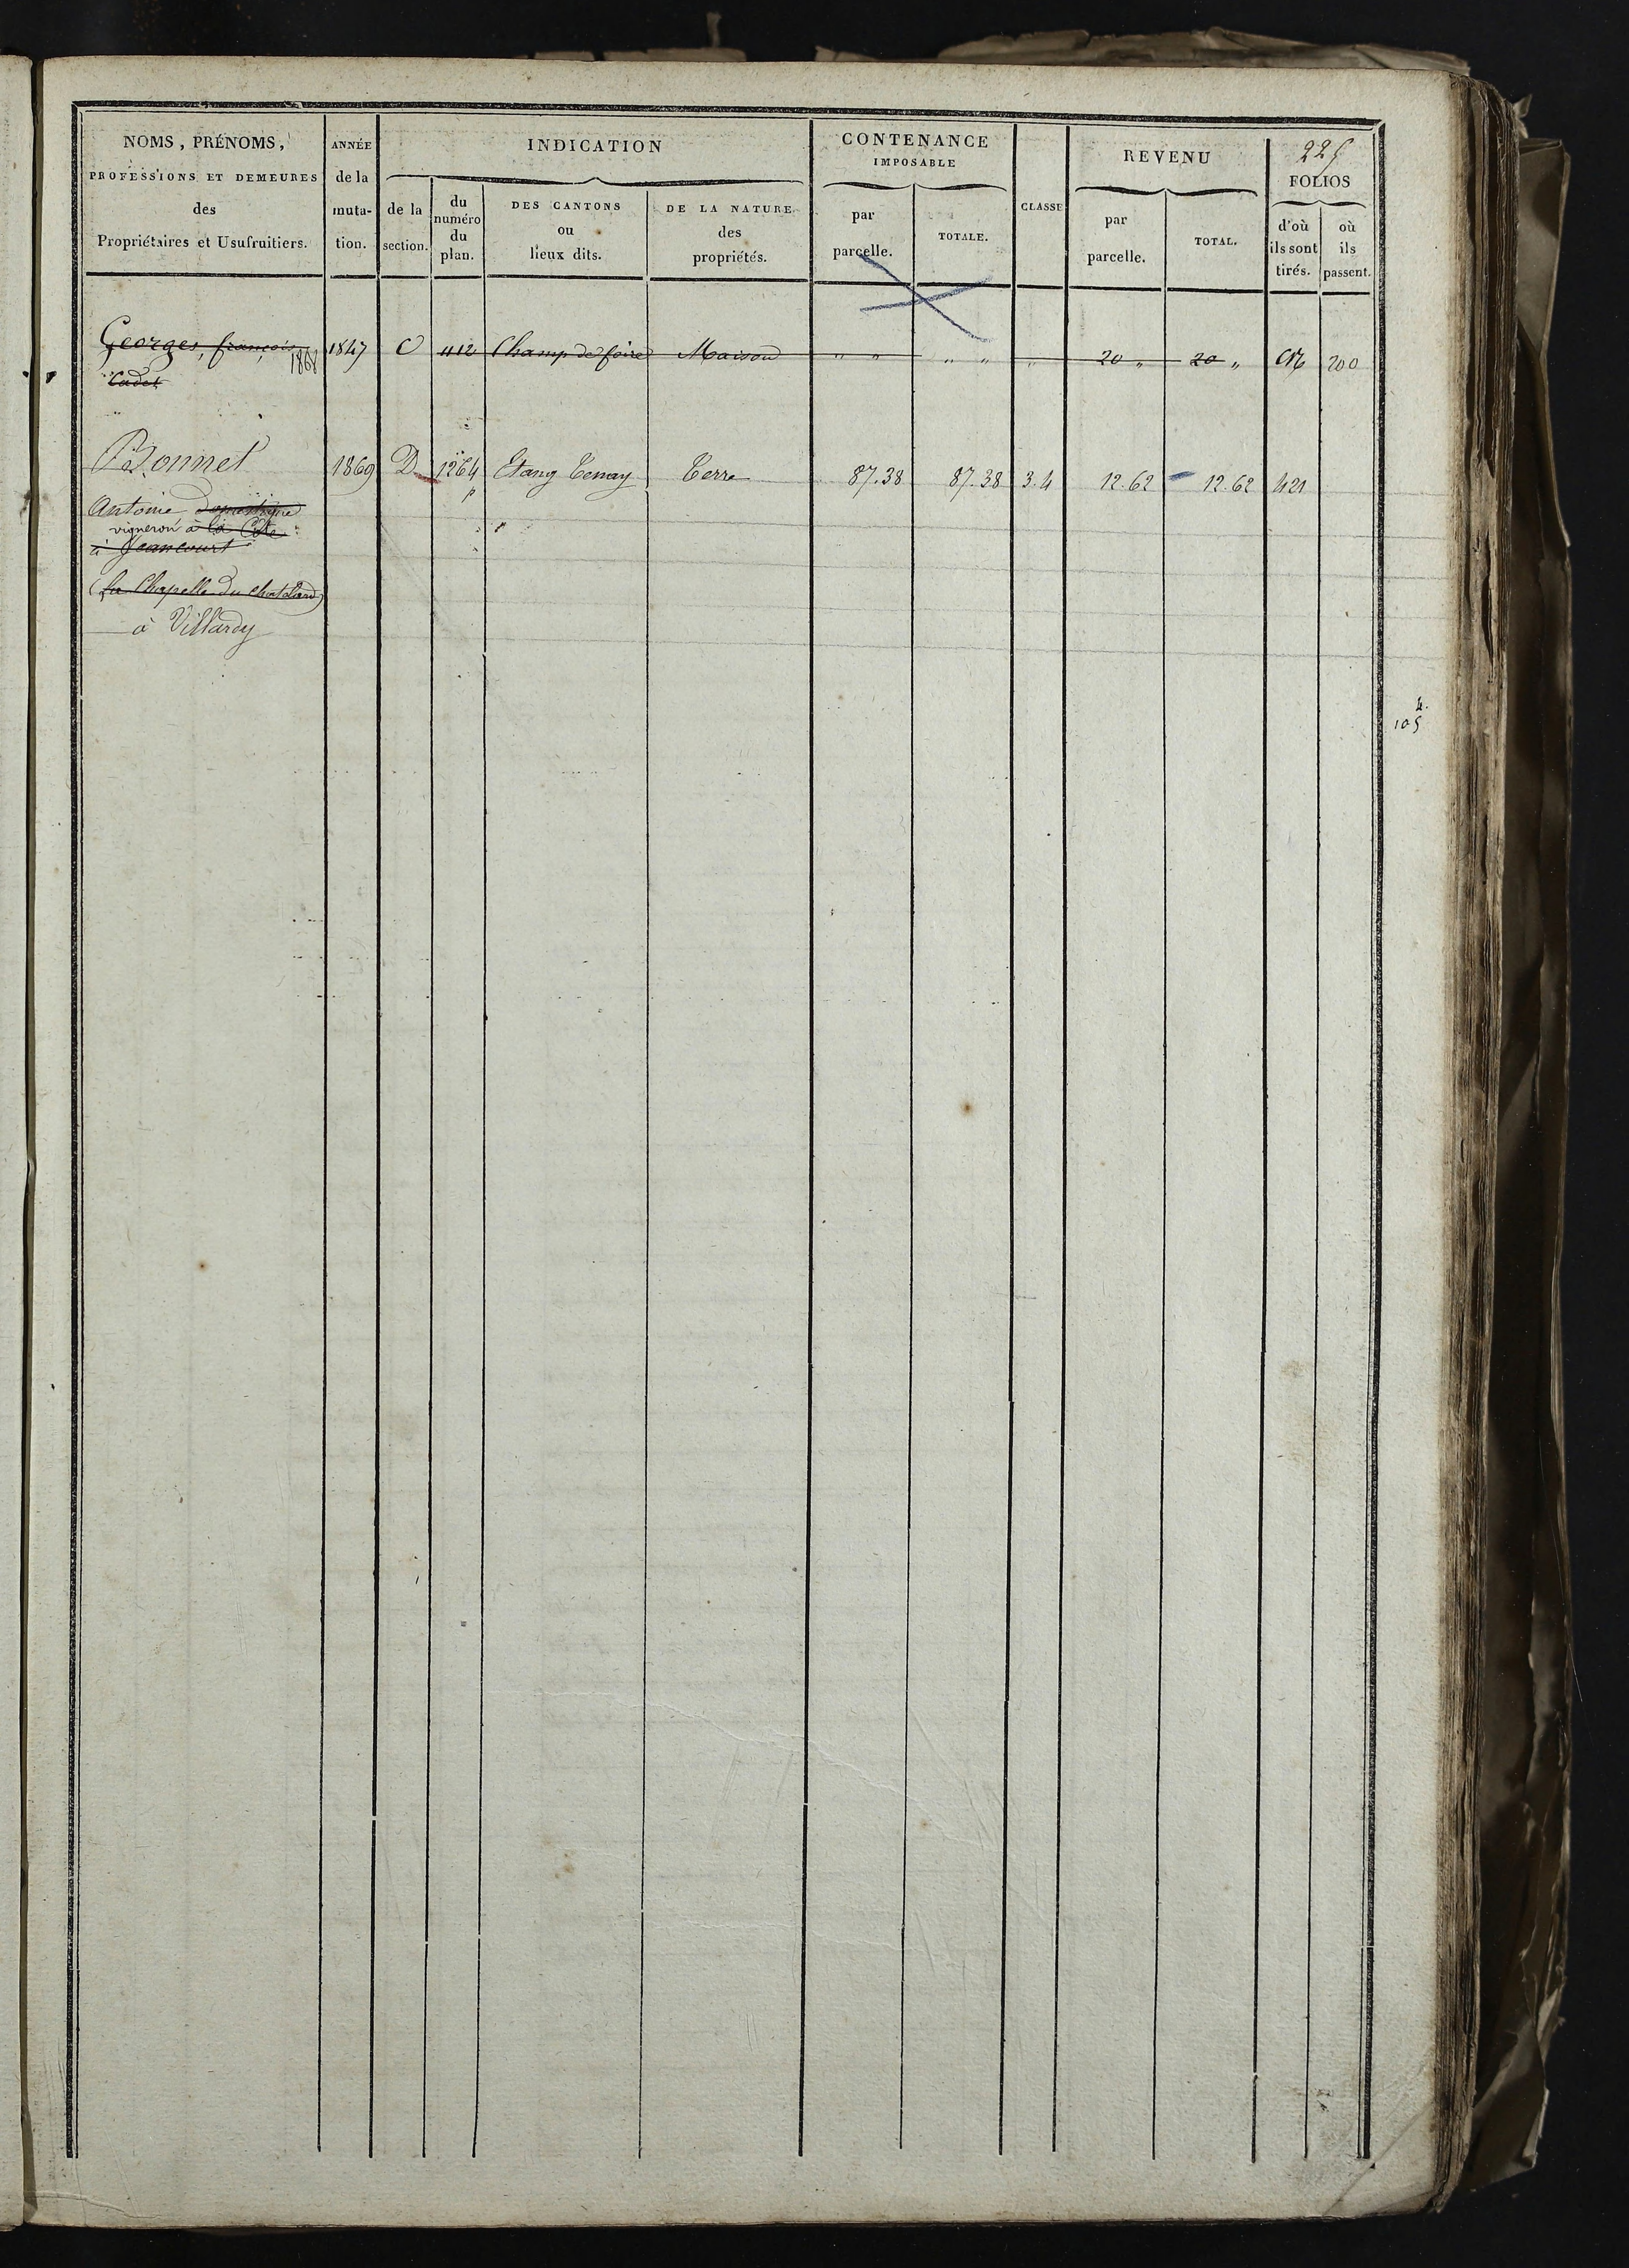 225
NOMS, PRÉNOMS, PROFESSIONS ET DEMEURES des Propriétaires et Usufruitiers.
ANNÉE de la muta- tion.
INDICATION
de la section.
du numéro du plan.
DES CANTONS ou lieux dits.
DE LA NATURE des propriétés.
CONTENANCE IMPOSABLE
par parcelle.
TOTALE.
CLASSE
REVENU
par parcelle.
TOTAL.
FOLIOS
d'où ils sont tirés.
où ils passent.
Georges, françois 1847 C 412 Champ de foire Maison " " " " " 20 " 20 " 200
1868
Cadet
Bonnet 1869 D 1264 Etang Tenay Terre 87.38 87.38 3.4 12.62 12.62 421
p
Antoine domestique
vigneron à la Côte
à Jeancourt
(la Chapelle du chatelard)
à Villardy
4.
105